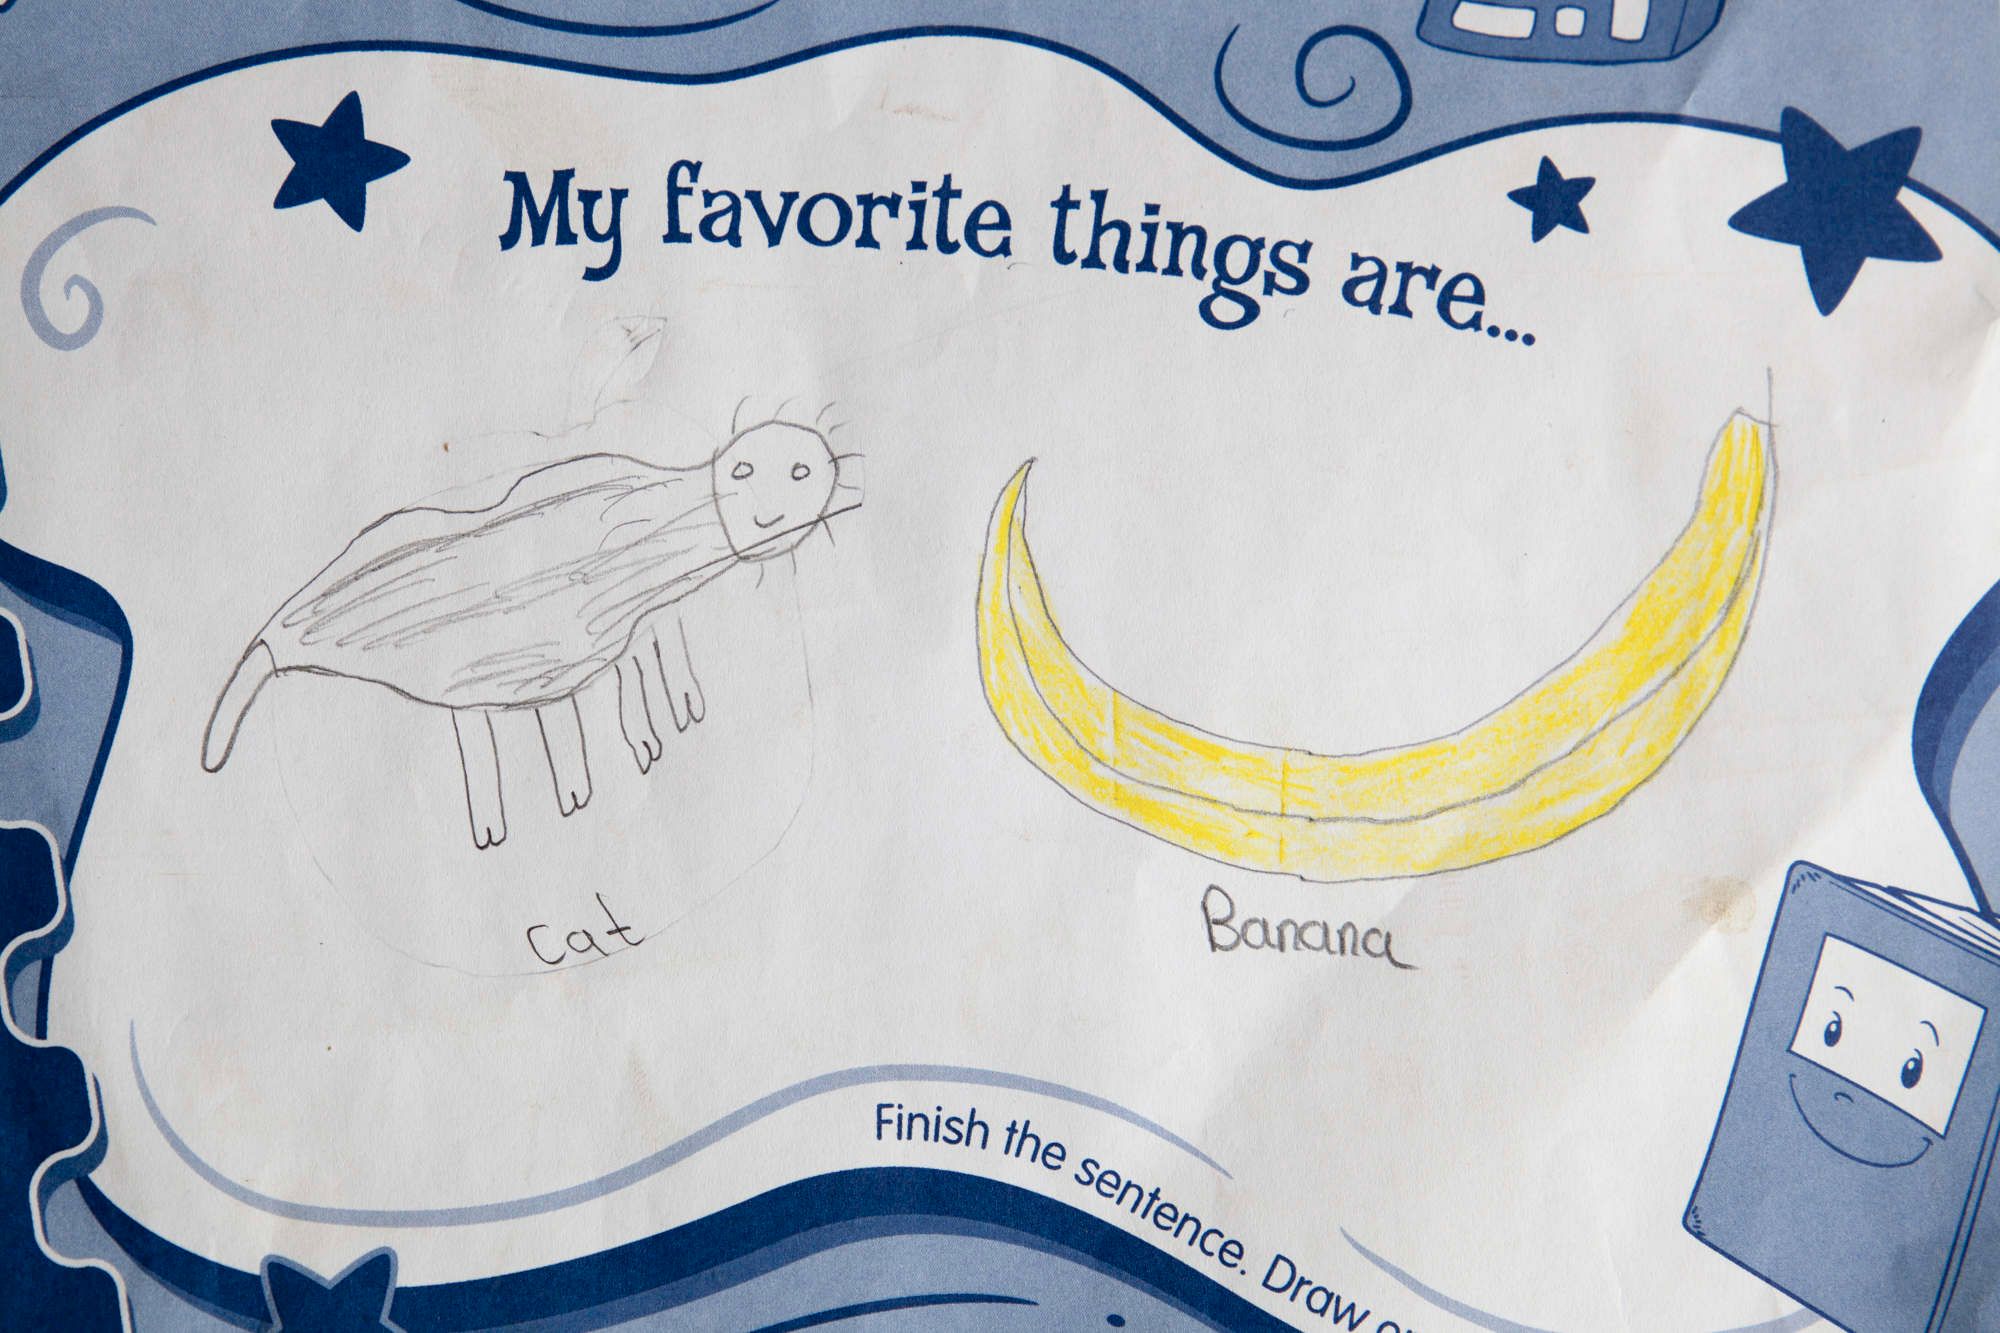 My favorite things are...
Cat
Banana
Finish the sentence. Draw